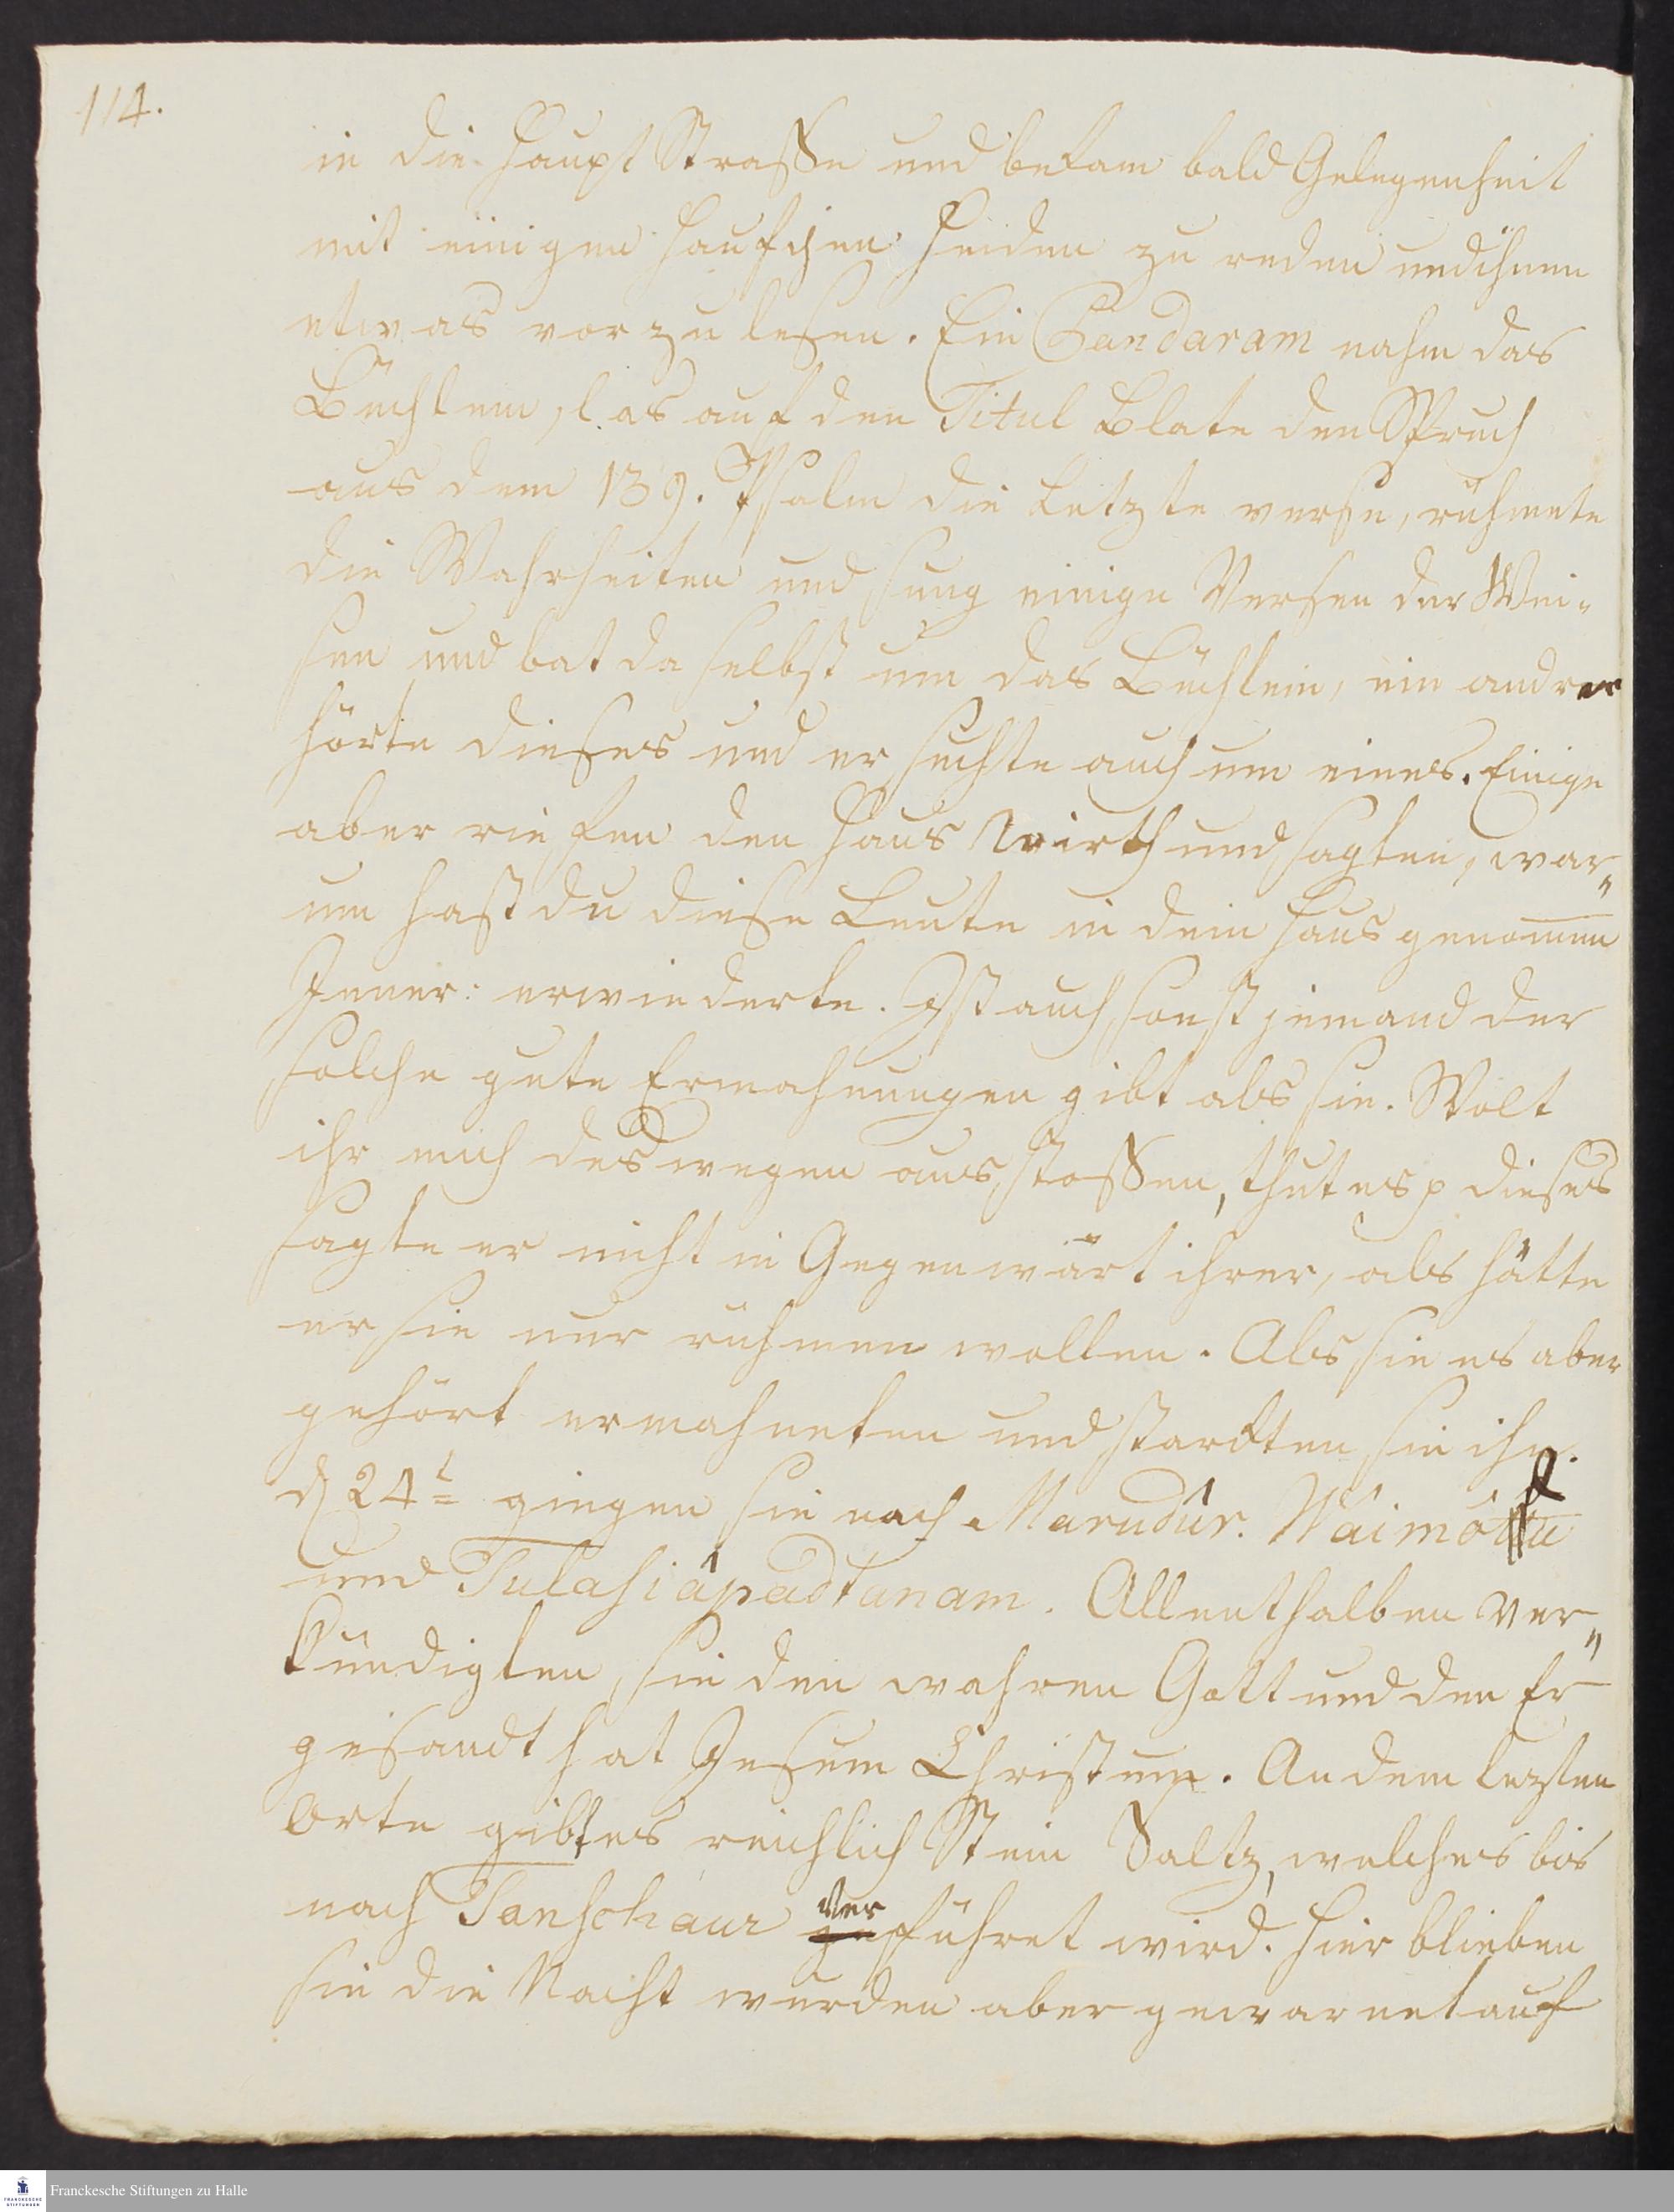 114.
in die Haupt Straße und bekam bald Gelegenheit
mit einigen Haufchen Heiden zu reden und ihnen
etwas vor zu lesen. Ein Pandaram nahm das
Büchlein, las auf den Titul Blate den Spruch
aus dem 139. Psalm die Letzte verse, rühmete
die Wahrheiten und sung einige Versen der Wei-
sen und bat da selbst um das Büchlein, ein andrer
hörte dieses und er suchte auch um eines. Einige
aber riefen den Haus Wirth und sagten, war„
um hast du diese Leute in dein Haus genom̅en
Jener: erwiederte. Ist auch sonst jemand der
solche gute Ermahnungen gibt als sie. Wolt
ihr mich deswegen aus stoßen, thut es p dieses
sagte er nicht in Gegenwärt ihrer, als hätte
er sie nur rühmen wollen. Als sie es aber
gehört ermahneten und starckten sie ihn.
d 24t gingen sie nach Marudûr. Wâimô
und Tulasiâpadtanam. Allenthalben ver„
kündigten sie den wahren Gott und den Er
gesandt hat Jesum Christum. An dem lezten
Orte gibt es reichlich Stein Saltz, welches bis
nach Tanschaur verführet wird. Hier blieben
sie die Nacht wurden aber gewarnet auf
Franckesche Stiftungen zu Halle